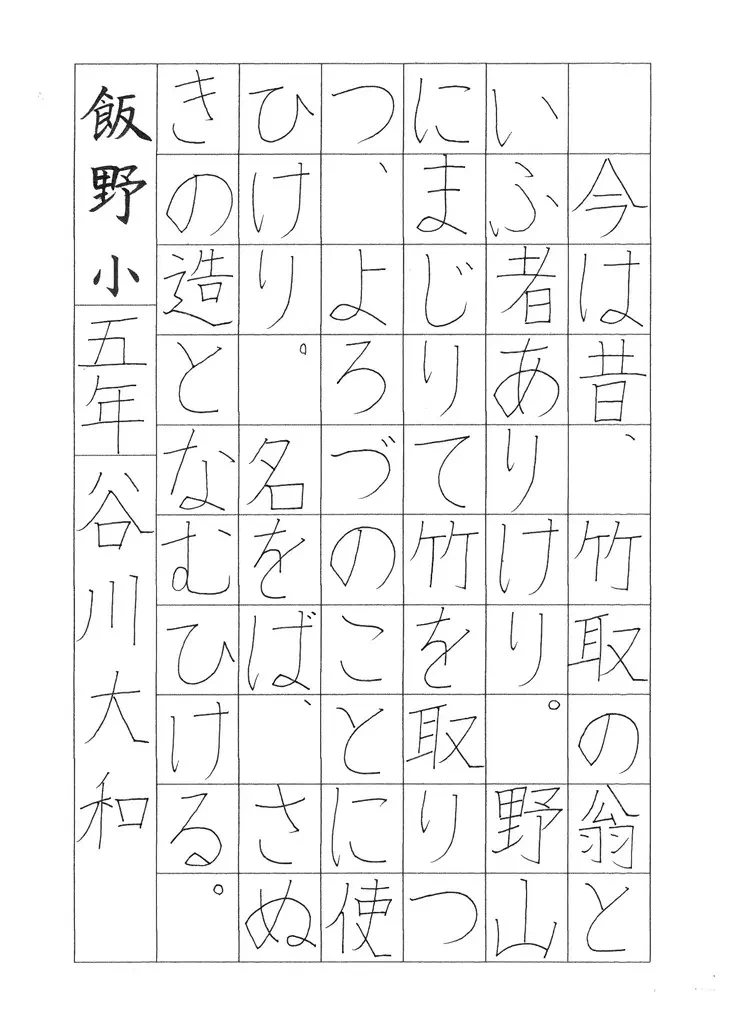 今は昔、竹取の翁と
いふ者ありけり。野山
にまじりて竹を取りつ
つ、よろづのことに使
ひけり。名をば、さぬ
きの造となむひける。
飯野小五年谷川大和